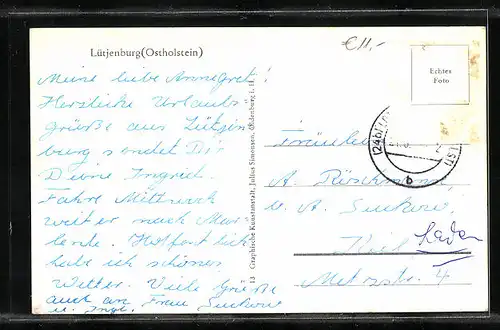 Lütjenburg (Ostholstein)
€11,-
Echtes
Foto
Meine liebe Annegret!
Herzliche Urlaubs-
grüße aus Lütjen
burg sendet Dir
Deine Ingrid.
Fahre Mittwoch
weiter nach Mal
lente. Hoffentlich
habe ich schönes
Wetter. Viele Grüße
auch an Frau Suckow
u.
13 Graphische Kunstanstalt, Julius Simonsen, Oldenburg i. H.
(24b)
b
Fräulein
A.
b. A. Suckow
Kiel
Laden
Metzstr. 4